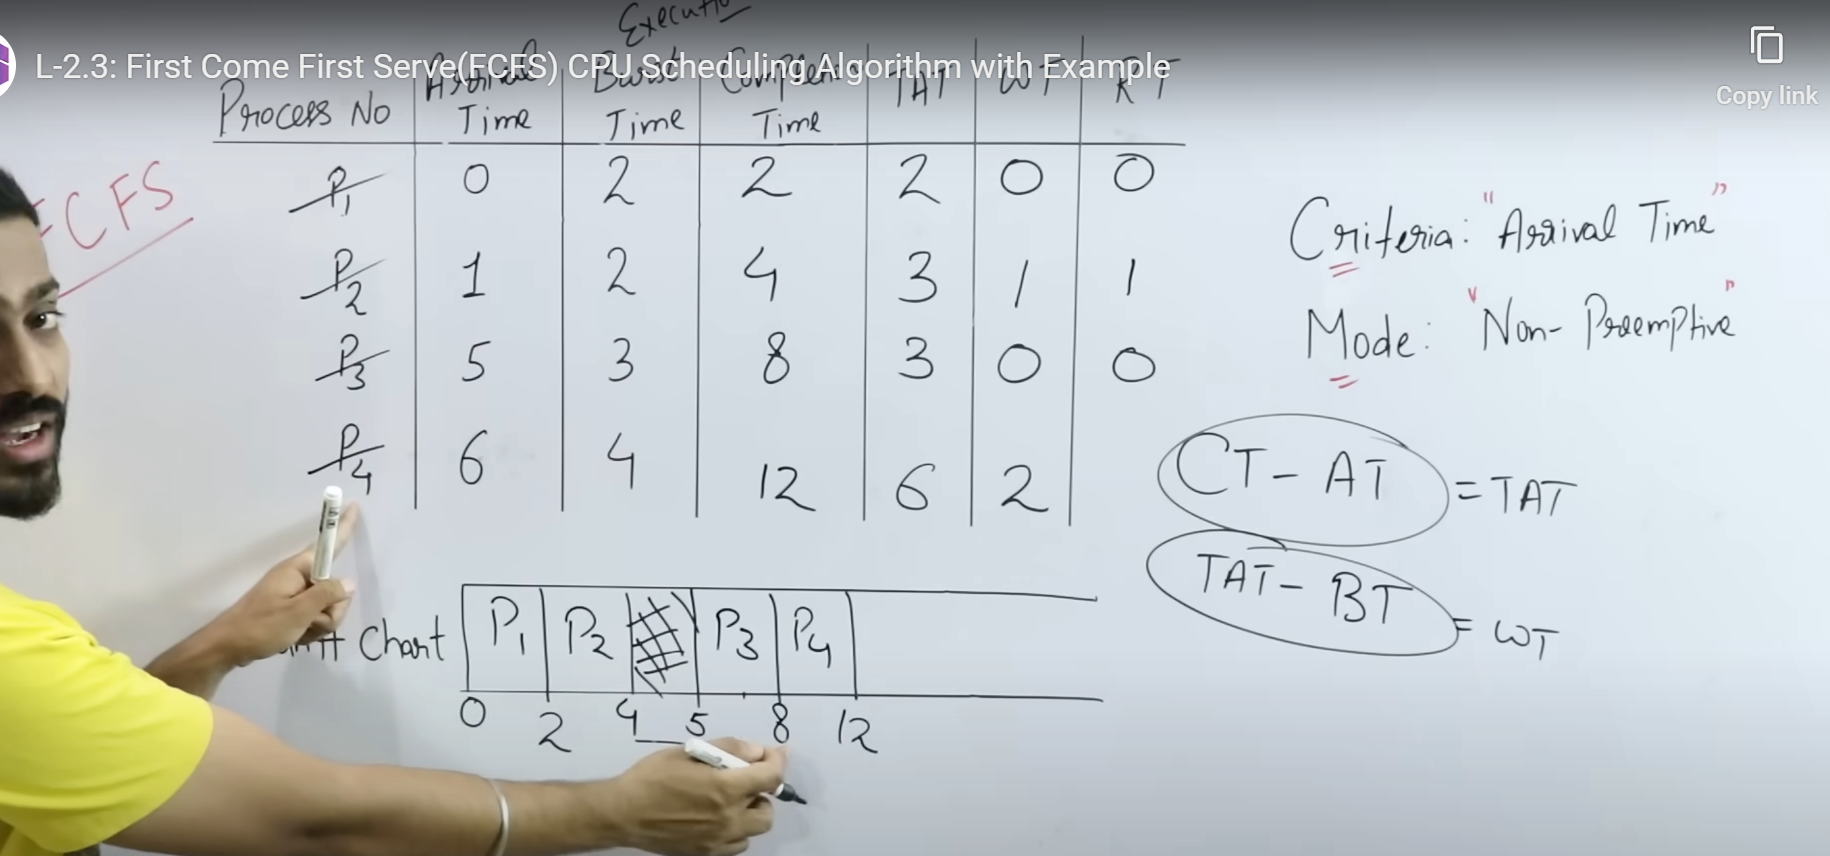 L-2.3: First Come First Serve(FCFS) CPU Scheduling Algorithm with Example
Copy link
Process No Arrival Time Burst Time Time TAT WT RT
P1 0 2 2 2 0 0
P2 1 2 4 3 1 1
P3 5 3 8 3 0 0
P4 6 4 12 6 2
FCFS
Criteria: "Arrival Time"
Mode: "Non-Preemptive"
CT - AT = TAT
TAT - BT = WT
Chart P1 P2 P3 P4
0 2 4 5 8 12